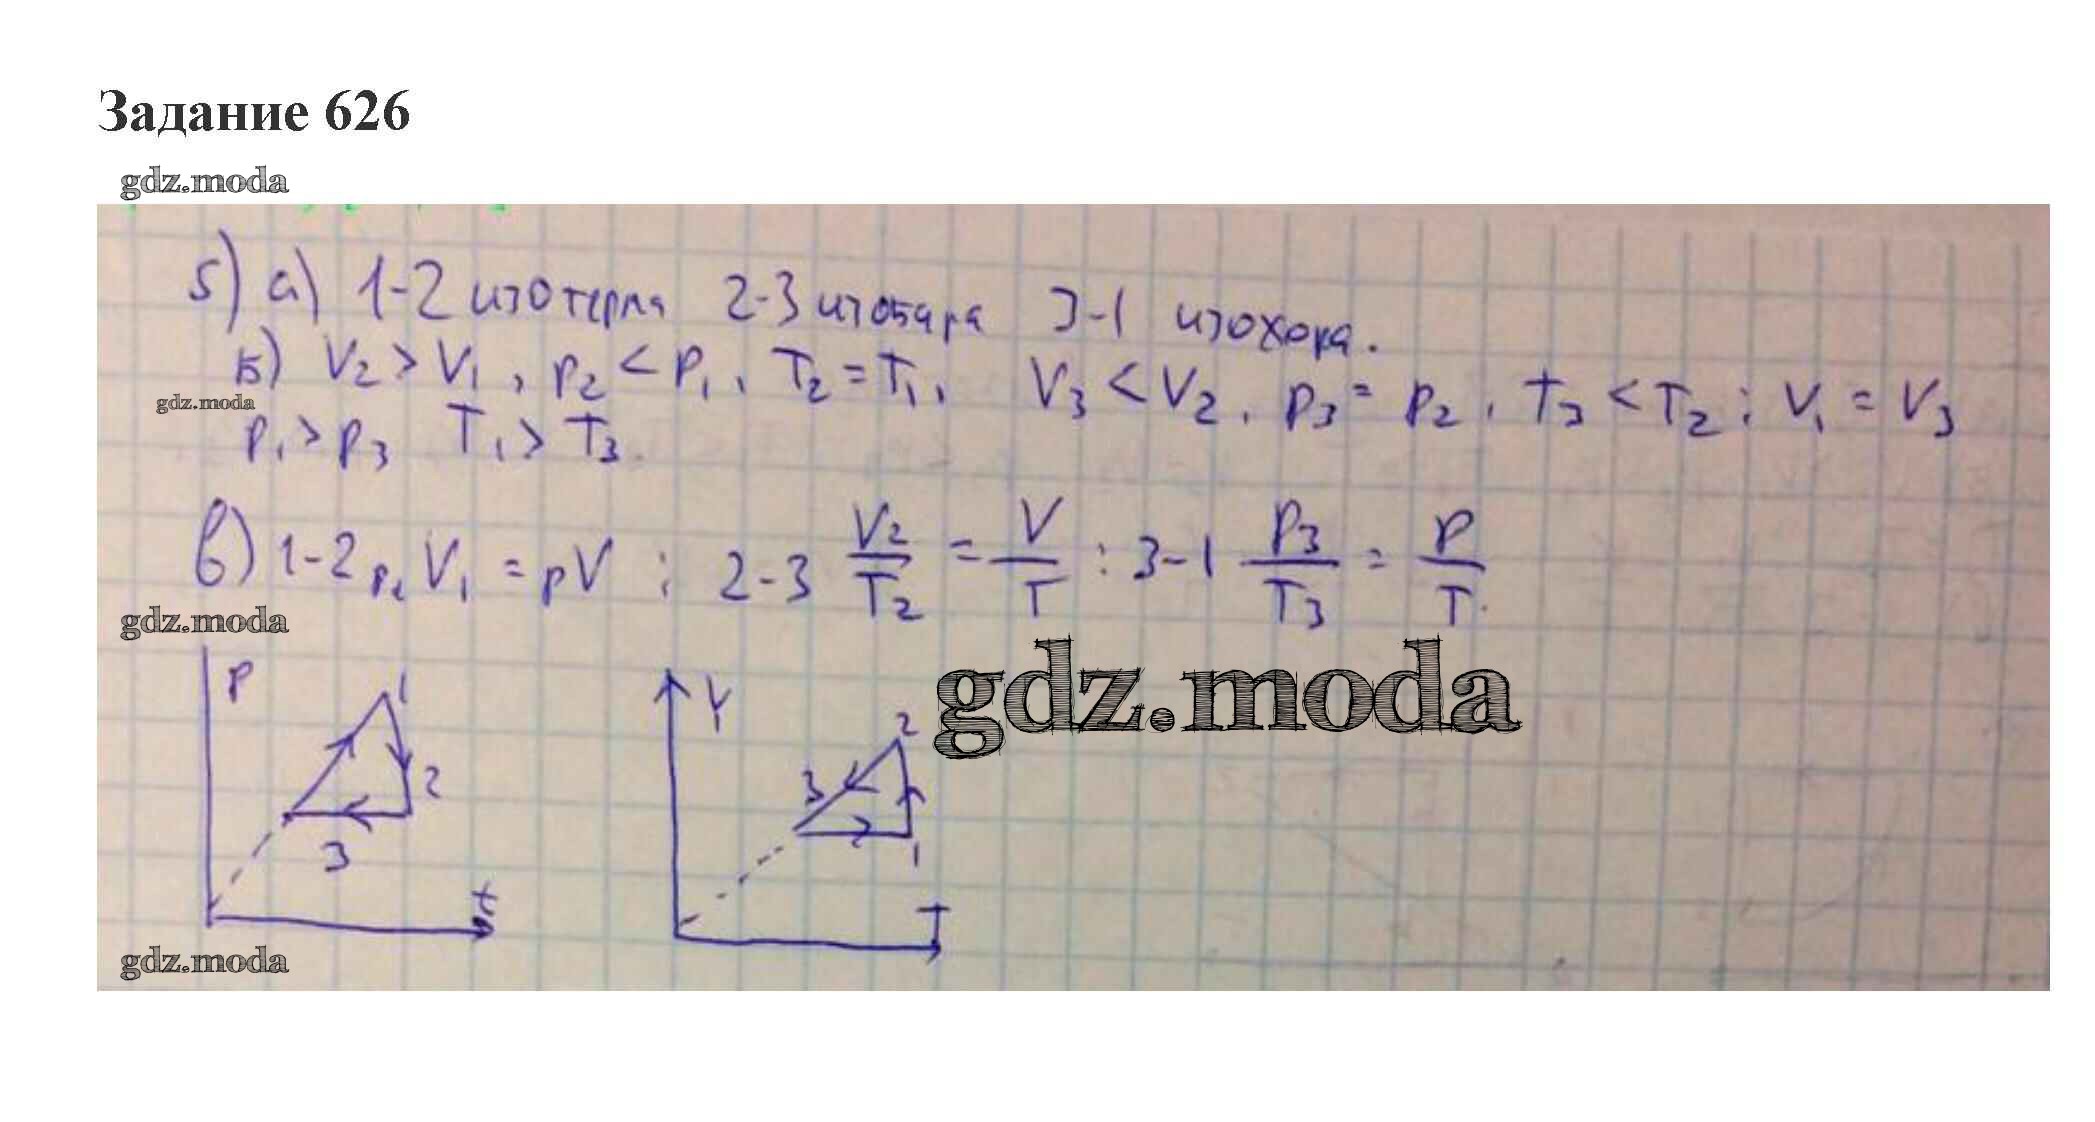 Задание 626
gdz.moda
5) а) 1-2 изотерма 2-3 изобара 3-1 изохора.
Б) V₂ > V₁, p₂ < p₁, T₂ = T₁, V₃ < V₂, p₃ = p₂, T₃ < T₂; V₁ = V₃
gdz.moda
p₁ > p₃ T₁ > T₃.
в) 1-2 p₁V₁ = pV ; 2-3 V₂/T₂ = V/T ; 3-1 p₃/T₃ = p/T.
gdz.moda
gdz.moda
P 1 2 3 t
V 2 3 1 T
gdz.moda